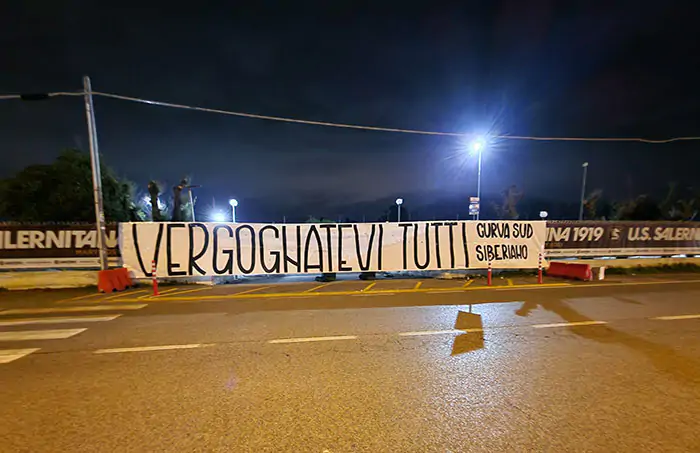 VERGOGNATEVI TUTTI
CURVA SUD
SIBERIANO
ALERNITAN
INA 1919
U.S. SALERN